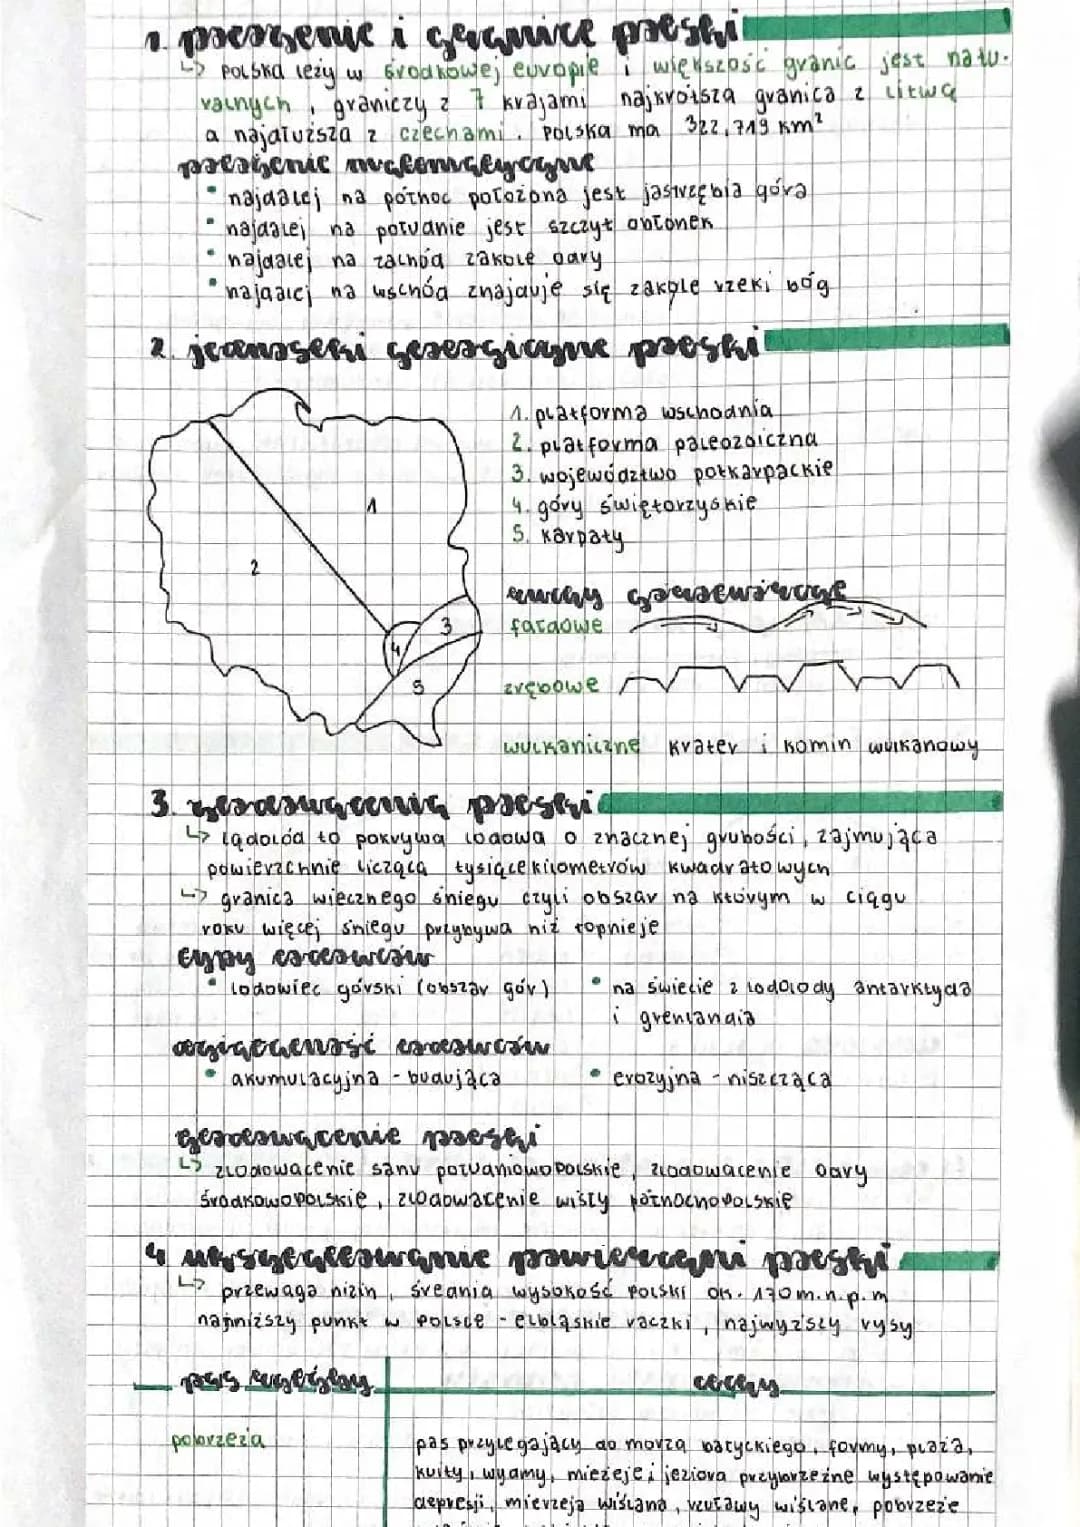 1. położenie i granice polski
↳ polska leży w środkowej europie i większość granic jest natu-
ralnych, graniczy z 7 krajami najkrótsza granica z litwą
a najdłuższa z czechami. polska ma 322,719 km²
położenie matematyczne
• najdalej na północ położona jest jastrzębia góra
• najdalej na południe jest szczyt opłonek
• najdalej na zachód zakole odry
• najdalej na wschód znajduje się zakole rzeki bóg
2. jednostki geologiczne polski
1. platforma wschodnia
2. platforma paleozoiczna
3. województwo potkarpackie
4. góry świętorzyskie
5. karpaty
1
2
3
4
5
ruchy górotwórcze
fałdowe
zrębowe
wulkaniczne krater i komin wulkanowy
3. zlodowacenia polski
↳ lądolód to pokrywa lodowa o znacznej grubości, zajmująca
powierzchnie liczącą tysiące kilometrów kwadratowych
↳ granica wiecznego śniegu czyli obszar na którym w ciągu
roku więcej śniegu przybywa niż topnieje
typy lodowców
• lodowiec górski (obszar gór)
• na świecie 2 lodolody antarktyda
i grenlandia
działalność lodowców
• akumulacyjna - budująca • erozyjna - niszcząca
zlodowacenie polski
↳ zlodowacenie sanu południowopolskie, zlodowacenie odry
środkowopolskie, zlodowacenie wisły północnopolskie
4 ukształtowanie powierzchni polski
↳ przewaga nizin, średnia wysokość polski ok. 170 m.n.p.m
najniższy punkt w polsce - elbląskie raczki, najwyższy rysy
pas rzeźby cechy
pobrzeża
pas przylegający do morza bałyckiego, formy, plaża,
klify, wydmy, mierzeje i jeziora przybrzeżne występowanie
depresji, mierzeja wiślana, żuławy wiślane, pobrzeże